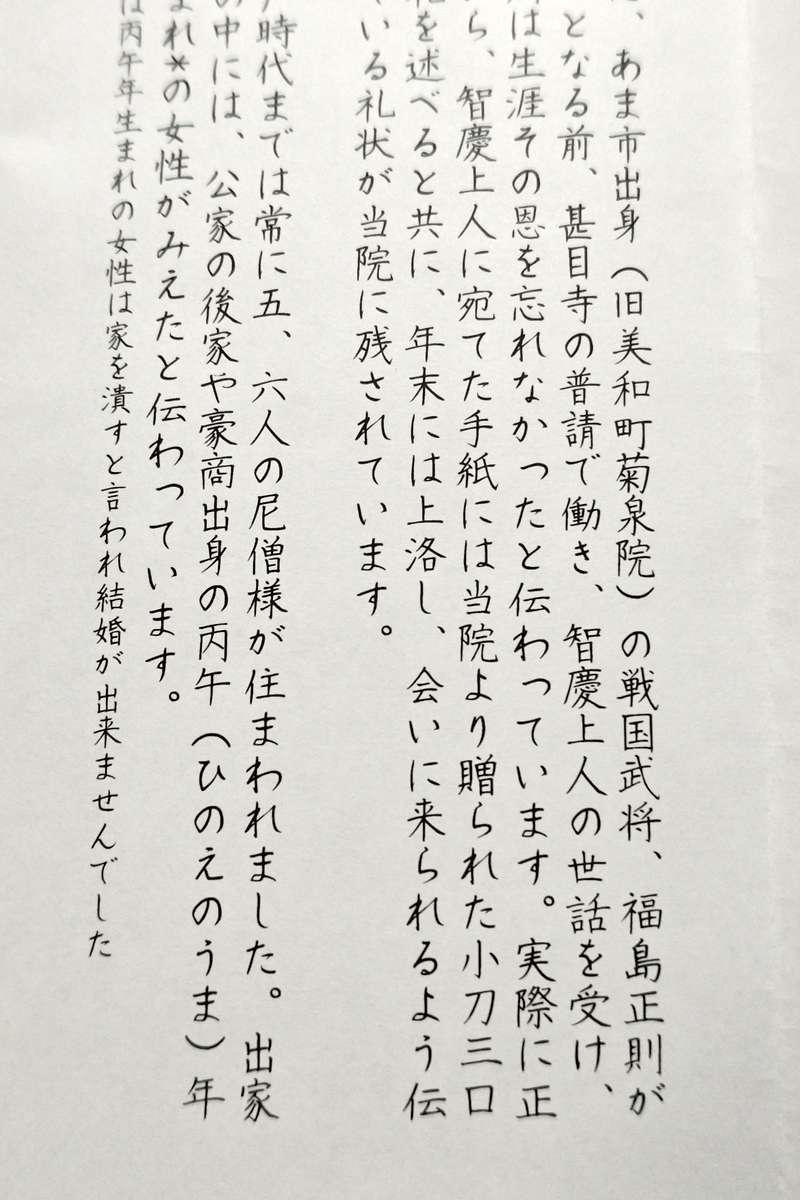 、あま市出身（旧美和町菊泉院）の戦国武将、福島正則が
となる前、甚目寺の普請で働き、智慶上人の世話を受け、
は生涯その恩を忘れなかったと伝わっています。実際に正
ら、智慶上人に宛てた手紙には当院より贈られた小刀三口
を述べると共に、年末には上洛し、会いに来られるよう伝
いる礼状が当院に残されています。
時代までは常に五、六人の尼僧様が住まわれました。出家
の中には、公家の後家や豪商出身の丙午（ひのえのうま）年
まれ*の女性がみえたと伝わっています。
は丙午年生まれの女性は家を潰すと言われ結婚が出来ませんでした